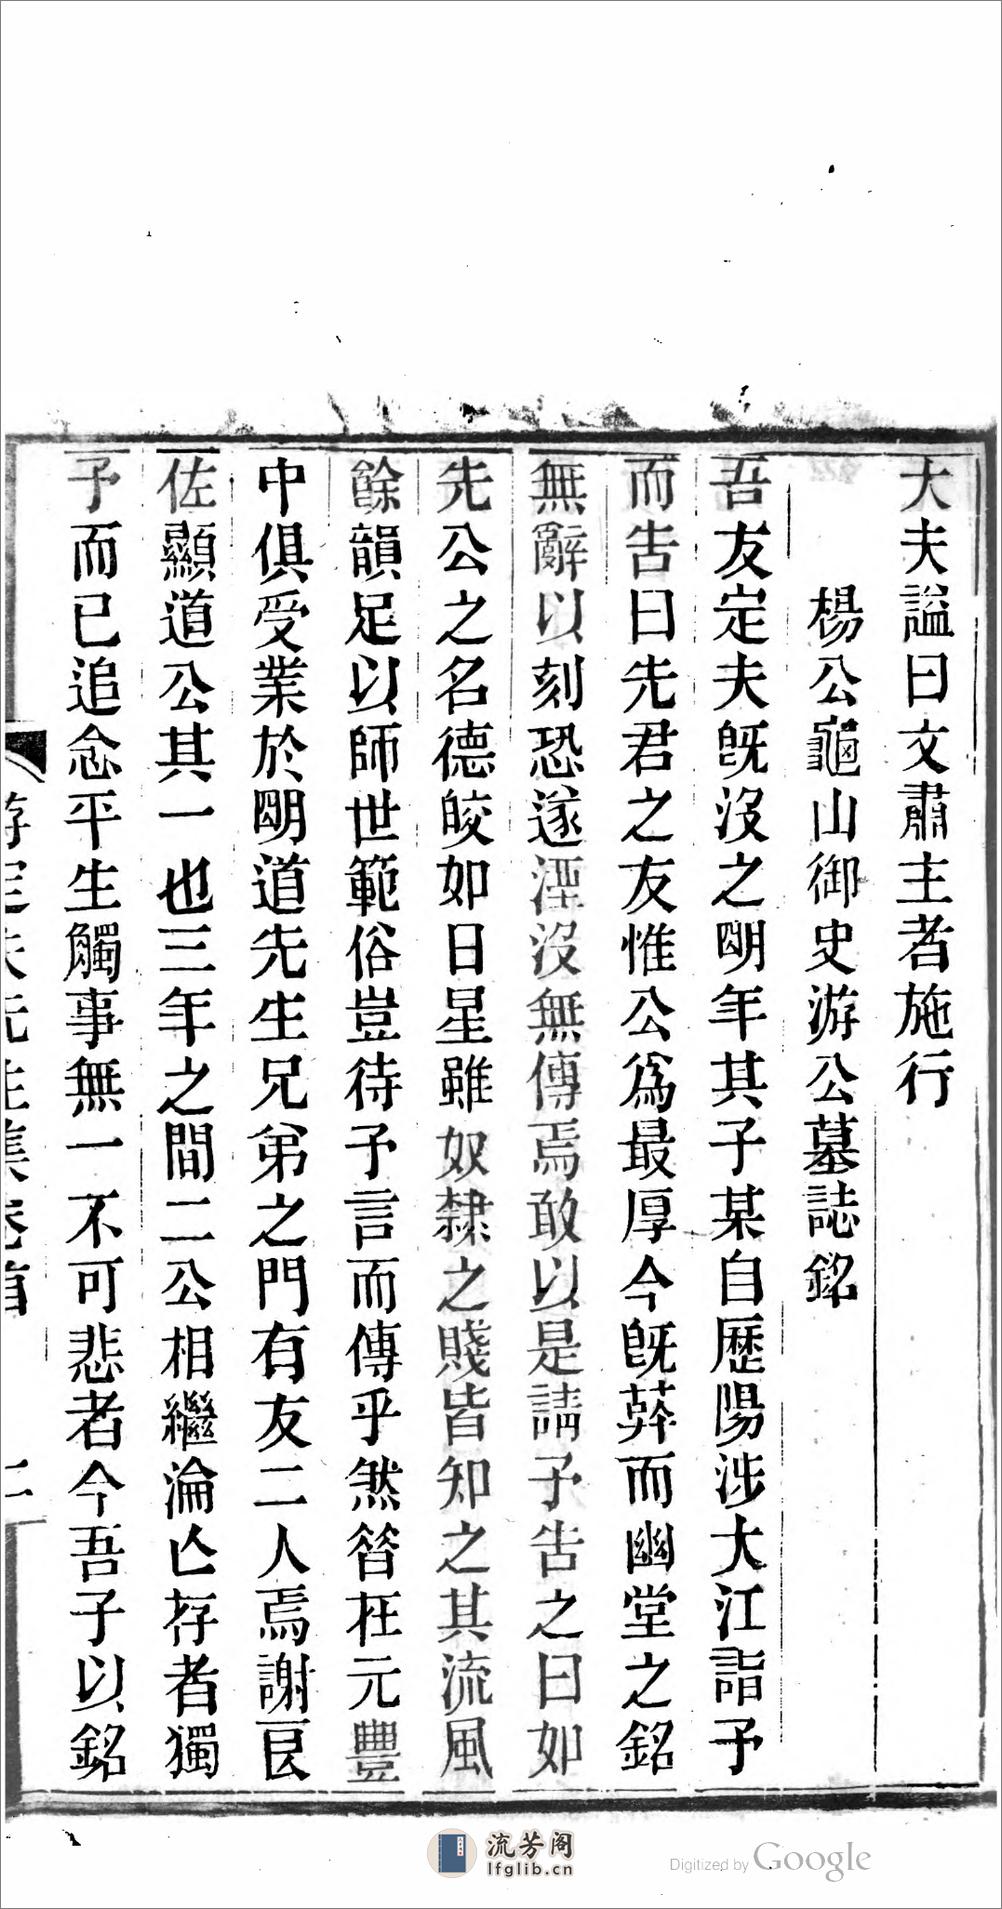 大夫謚曰文肅主者施行
楊公龜山御史游公墓誌銘
吾友定夫旣沒之明年其子某自歷陽涉大江詣予
而告曰先君之友惟公爲最厚今旣葬而幽堂之銘
無辭以刻恐遂湮沒無傳焉敢以是請予告之曰如
先公之名德皎如日星雖奴隸之賤皆知之其流風
餘韻足以師世範俗豈待予言而傳乎然昔在元豐
中俱受業於明道先生兄弟之門有友二人焉謝良
佐顯道公其一也三年之間二公相繼淪亡存者獨
予而已追念平生觸事無一不可悲者今吾子以銘
游定夫先生集卷首
二
流芳阁
lfglib.cn
Digitized by Google